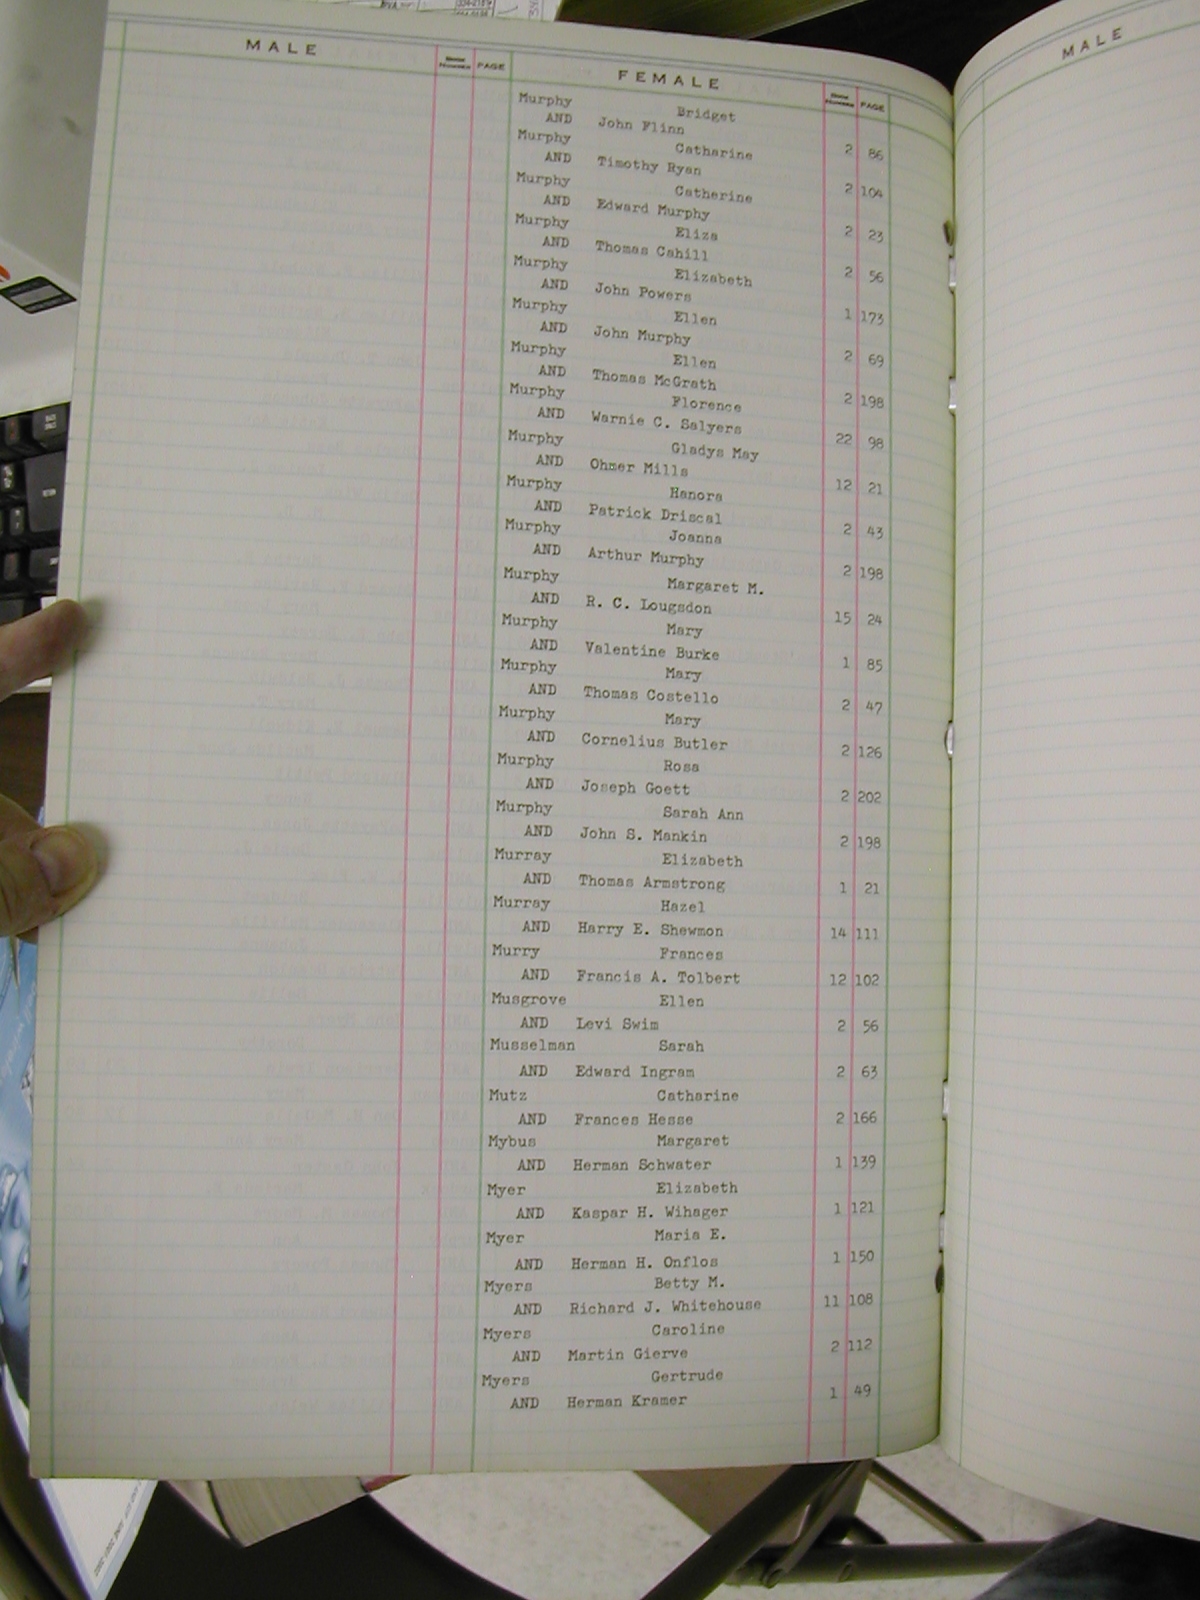 MALE BOOK NUMBER PAGE FEMALE BOOK NUMBER PAGE MALE
Murphy Bridget
AND John Flinn 2 86
Murphy Catharine
AND Timothy Ryan 2 104
Murphy Catherine
AND Edward Murphy 2 23
Murphy Eliza
AND Thomas Cahill 2 56
Murphy Elizabeth
AND John Powers 1 173
Murphy Ellen
AND John Murphy 2 69
Murphy Ellen
AND Thomas McGrath 2 198
Murphy Florence
AND Warnie C. Salyers 22 98
Murphy Gladys May
AND Ohmer Mills 12 21
Murphy Hanora
AND Patrick Driscal 2 43
Murphy Joanna
AND Arthur Murphy 2 198
Murphy Margaret M.
AND R. C. Lougsdon 15 24
Murphy Mary
AND Valentine Burke 1 85
Murphy Mary
AND Thomas Costello 2 47
Murphy Mary
AND Cornelius Butler 2 126
Murphy Rosa
AND Joseph Goett 2 202
Murphy Sarah Ann
AND John S. Mankin 2 198
Murray Elizabeth
AND Thomas Armstrong 1 21
Murray Hazel
AND Harry E. Shewmon 14 111
Murry Frances
AND Francis A. Tolbert 12 102
Musgrove Ellen
AND Levi Swim 2 56
Musselman Sarah
AND Edward Ingram 2 63
Mutz Catharine
AND Frances Hesse 2 166
Mybus Margaret
AND Herman Schwater 1 139
Myer Elizabeth
AND Kaspar H. Wihager 1 121
Myer Maria E.
AND Herman H. Onflos 1 150
Myers Betty M.
AND Richard J. Whitehouse 11 108
Myers Caroline
AND Martin Gierve 2 112
Myers Gertrude
AND Herman Kramer 1 49